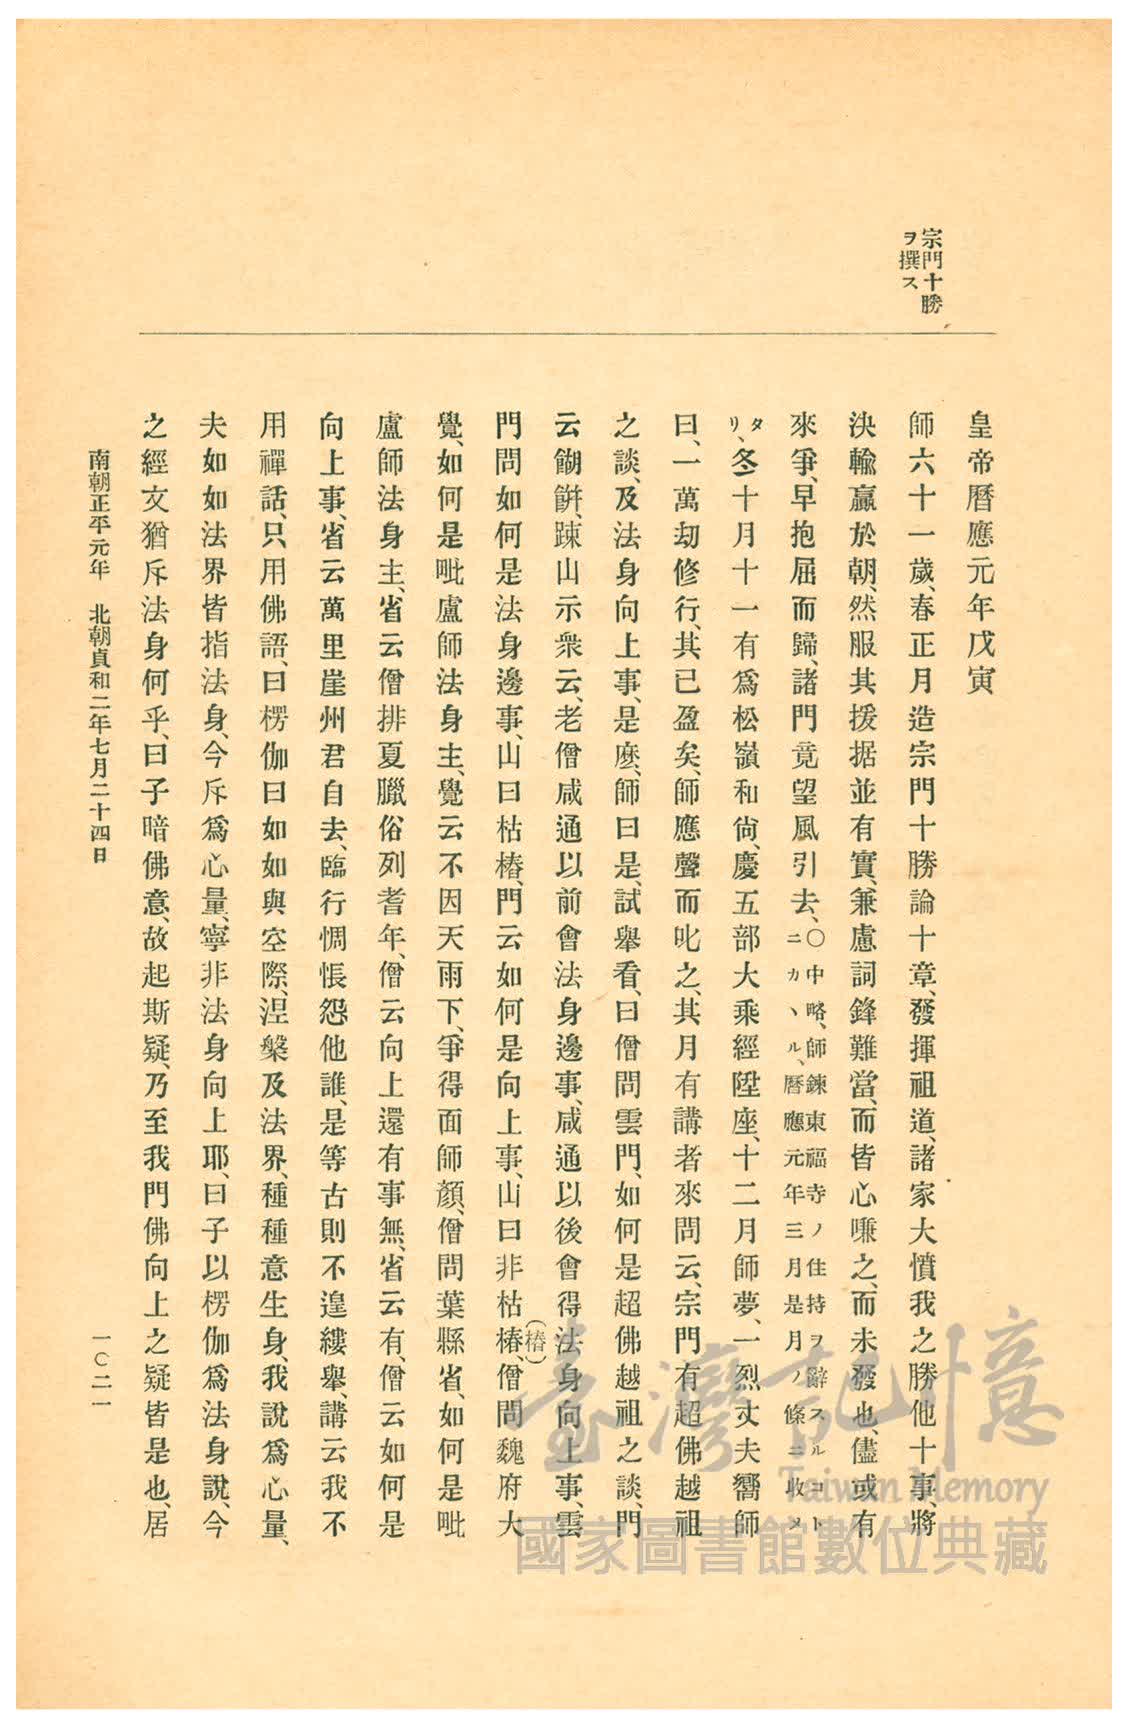 宗門十勝
ヲ撰ス
皇帝曆應元年戊寅
師六十一歲、春正月造宗門十勝論十章、發揮祖道、諸家大憤我之勝他十事、將
決輸贏於朝、然服其援据並有實、兼慮詞鋒難當、而皆心嗛之、而未發也、儘或有
來爭、早抱屈而歸、諸門竟望風引去、〇中略、師鍊東福寺ノ住持ヲ辭スルコト
ニカヽル、曆應元年三月是月ノ條ニ收メ
タ
リ、冬十月十一有爲松嶺和尙、慶五部大乘經陞座、十二月師夢、一烈丈夫嚮師
曰、一萬劫修行、其已盈矣、師應聲而叱之、其月有講者來問云、宗門有超佛越祖
之談、及法身向上事、是麽、師曰是、試舉看、曰僧問雲門、如何是超佛越祖之談、門
云餬餠、踈山示衆云、老僧咸通以前會法身邊事、咸通以後會得法身向上事、雲
門問如何是法身邊事、山曰枯樁、門云如何是向上事、山曰非枯椿、(樁)僧問魏府大
覺、如何是毗盧師法身主、覺云不因天雨下、爭得面師顏、僧問葉縣省、如何是毗
盧師法身主、省云僧排夏臘俗列耆年、僧云向上還有事無、省云有、僧云如何是
向上事、省云萬里崖州君自去、臨行惆悵怨他誰、是等古則不遑縷舉、講云我不
用禪話、只用佛語、曰楞伽曰如如與空際、涅槃及法界、種種意生身、我說爲心量、
夫如如法界皆指法身、今斥爲心量、寧非法身向上耶、曰子以楞伽爲法身說、今
之經文猶斥法身何乎、曰子暗佛意、故起斯疑、乃至我門佛向上之疑皆是也、居
南朝正平元年 北朝貞和二年七月二十四日
一〇二一
臺灣記憶
Taiwan Memory
國家圖書館數位典藏